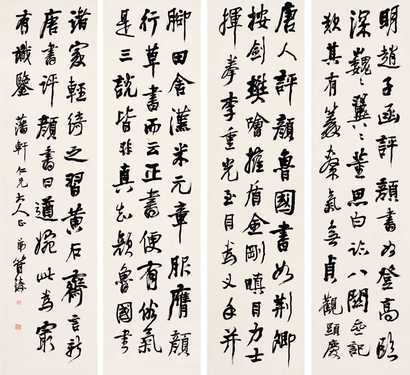 明趙子函評顏書如登高臨
深巍巍翼翼董思白跋八關齋記
歎其有氣無貞觀顯慶
唐人評顏魯國書如荊卿
按劍樊噲擁盾金剛瞋目力士
揮拳李重光至目為叉手并
腳田舍漢米元章服膺顏
行草書而云正書便有俗氣
是三說皆非真知顏魯國書
諸家輕綺之習黃石齋言新
唐書評顏書曰遒婉此為最
有識鑒 軒仁兄大人正 弟